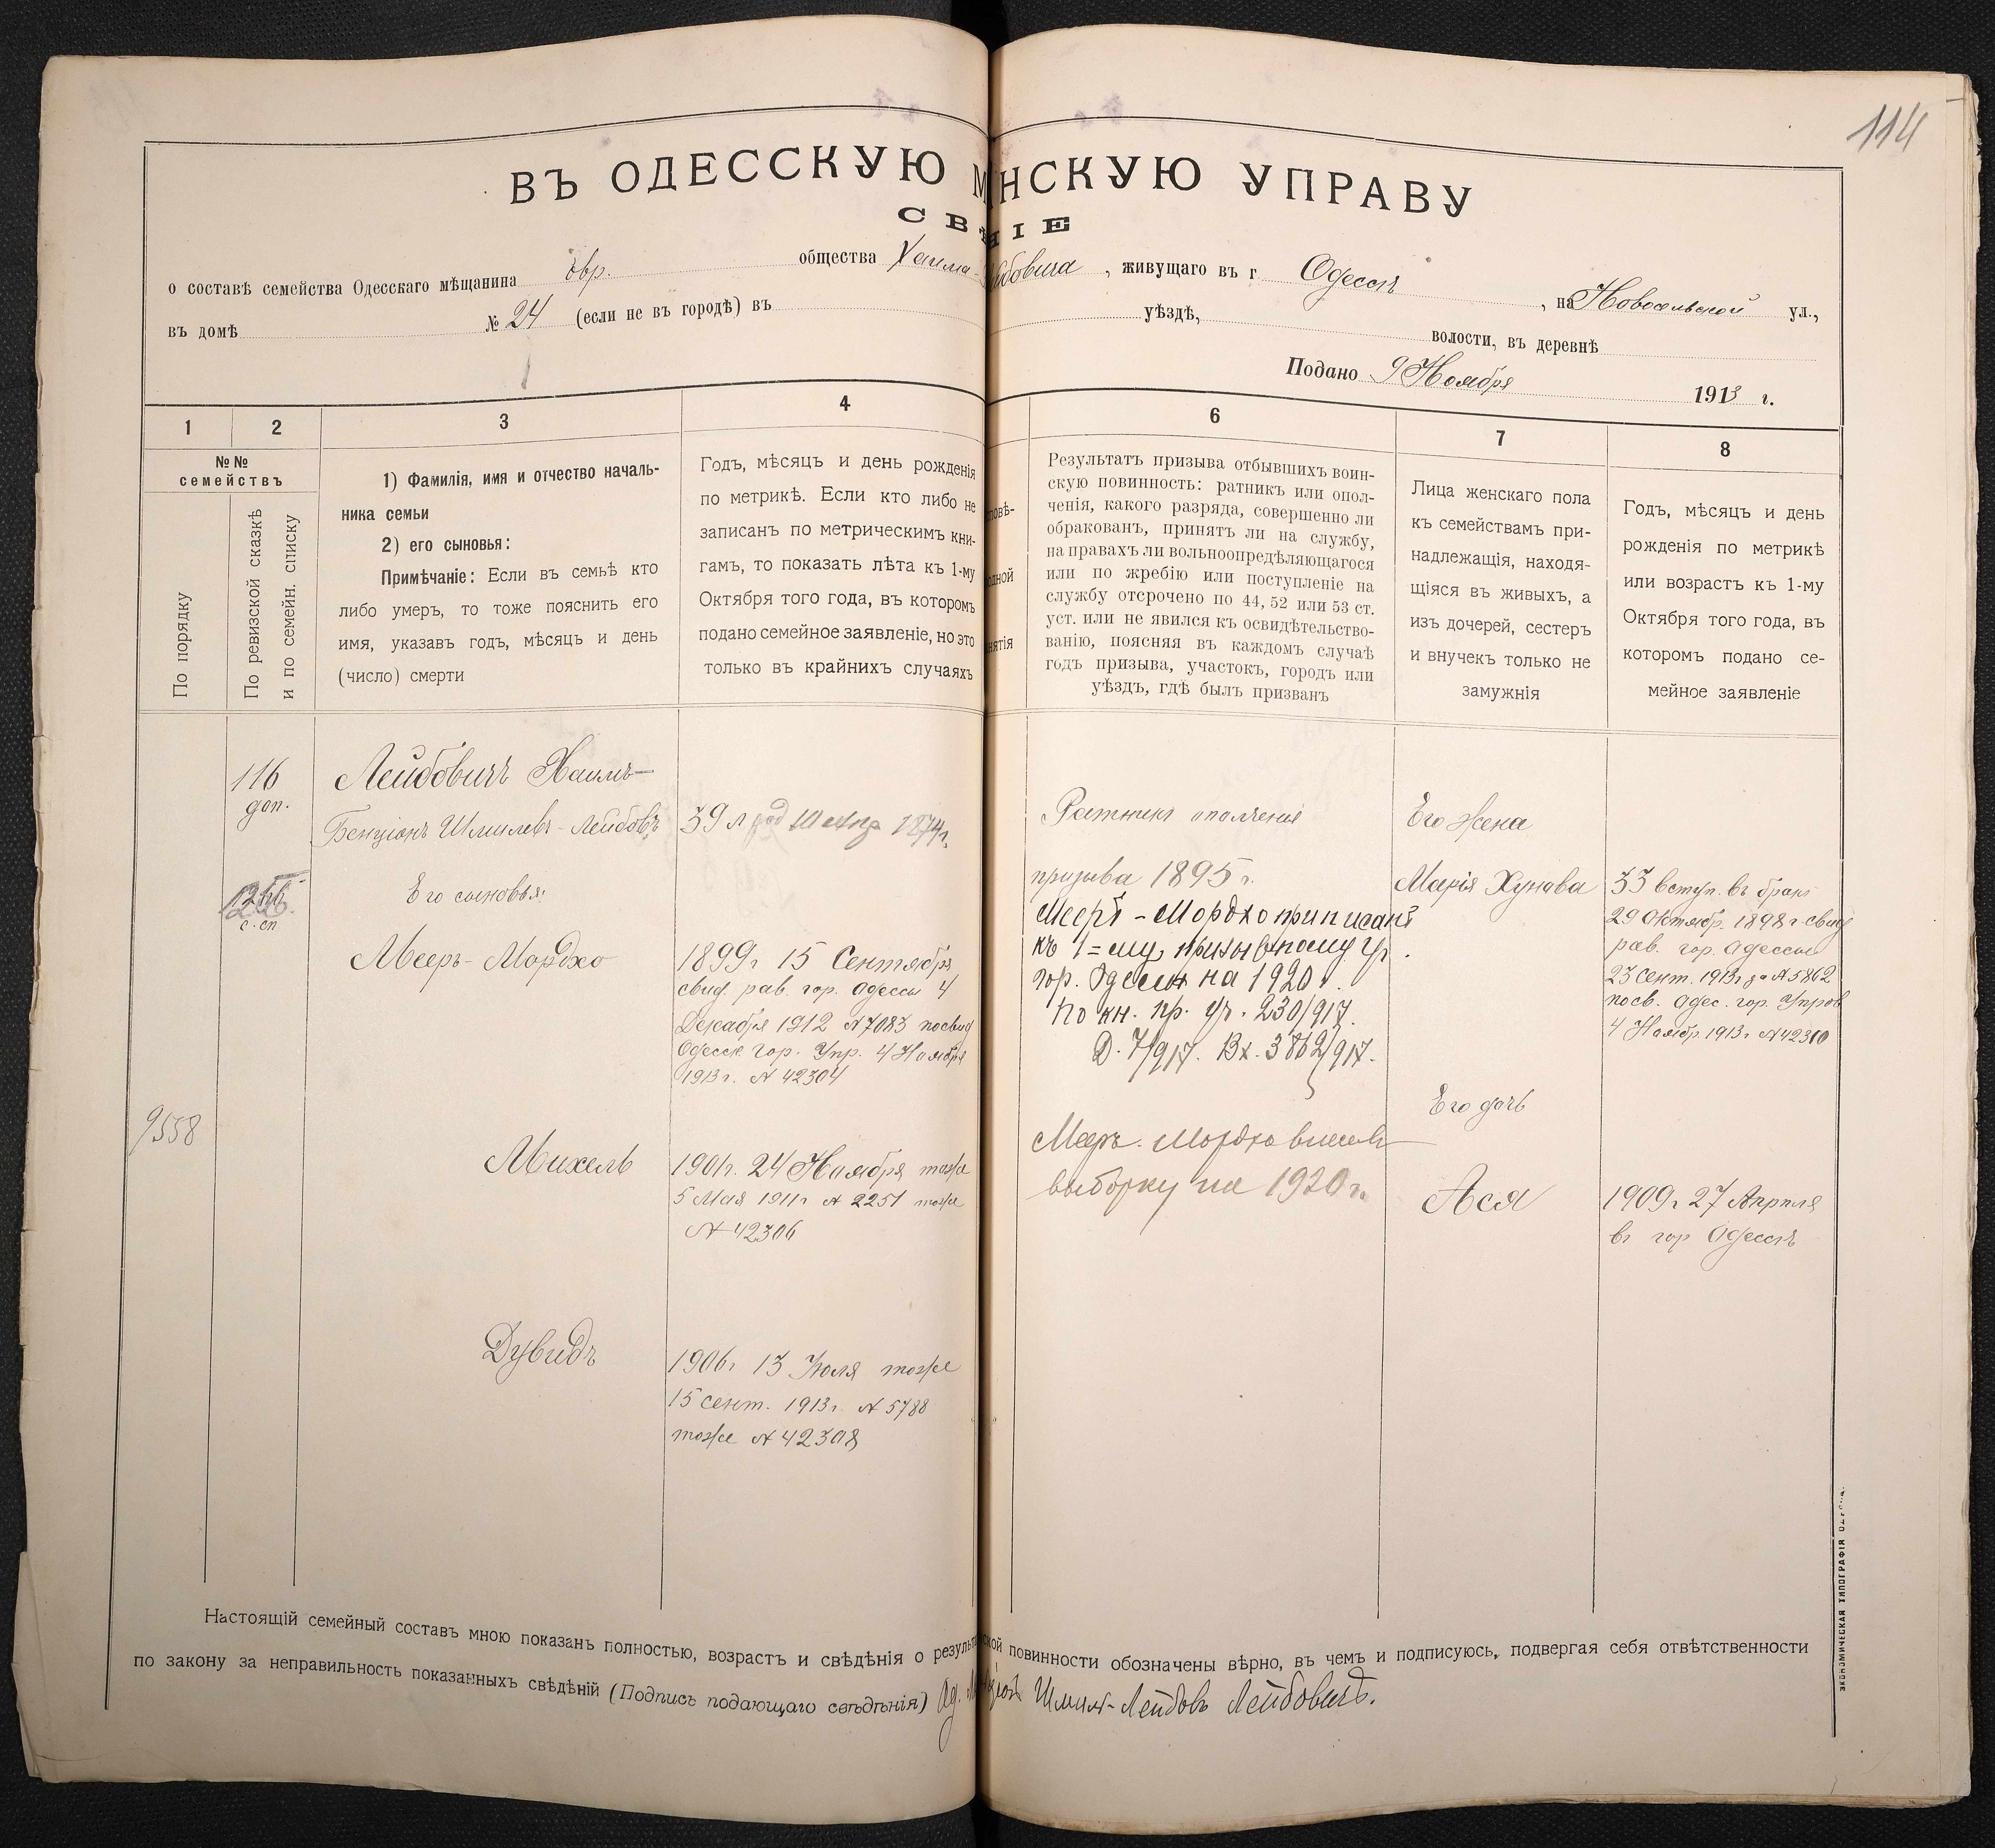 114
ВЪ ОДЕССКУЮ М НСКУЮ УПРАВУ
СВѢ НІЕ
о составѣ семейства Одесскаго мѣщанина евр. общества Хаима- йбовича, живущаго въ г Одессѣ, на Новосельской ул.,
въ домѣ № 24 (если не въ городѣ) въ уѣздѣ, волости, въ деревнѣ
Подано 9 Ноября 1913 г.
1 2 3 4 6 7 8
№№ семействъ
По порядку
По ревизской сказкѣ
и по семейн. списку
1) Фамилія, имя и отчество началь-
ника семьи
2) его сыновья:
Примѣчаніе: Если въ семьѣ кто
либо умеръ, то тоже пояснить его
имя, указавъ годъ, мѣсяцъ и день
(число) смерти
Годъ, мѣсяцъ и день рожденія
по метрикѣ. Если кто либо не
записанъ по метрическимъ кни-
гамъ, то показать лѣта къ 1-му
Октября того года, въ которомъ
подано семейное заявленіе, но это
только въ крайнихъ случаяхъ
повѣ-
одной
нятія
Результатъ призыва отбывшихъ воин-
скую повинность: ратникъ или опол-
ченія, какого разряда, совершенно ли
обракованъ, принятъ ли на службу,
на правахъ ли вольноопредѣляющагося
или по жребію или поступленіе на
службу отсрочено по 44, 52 или 53 ст.
уст. или не явился къ освидѣтельство-
ванію, поясняя въ каждомъ случаѣ
годъ призыва, участокъ, городъ или
уѣздъ, гдѣ былъ призванъ
Лица женскаго пола
къ семействамъ при-
надлежащія, находя-
щіяся въ живыхъ, а
изъ дочерей, сестеръ
и внучекъ только не
замужнія
Годъ, мѣсяцъ и день
рожденія по метрикѣ
или возрастъ къ 1-му
Октября того года, въ
которомъ подано се-
мейное заявленіе
116
доп.
с. сп
9558
Лейбовичъ Хаимъ-
Бенціонъ Шмилевъ-Лейбовъ
39 л род 1874 г.
Его сыновья:
Мееръ-Мордко
1899 г 15 Сентября
свид. рав. гор. Одессы 4
Декабря 1912 № 7083 по свид
Одесск Гор. Упр. 4 Ноября
1913 г. № 42304
Михель
1901 г. 24 Ноября тоже
5 Мая 1911 г № 2251 тоже
№ 42306
Дувидъ
1906 г 13 Іюля тоже
15 сент. 1913 г. № 5788
тоже № 42308
Ратникъ ополченія
призыва 1895 г.
Мееръ-Мордко приписанъ
къ 1=му призывному уч.
гор. Одессы на 1920 г.
По кн. пр. уч. 230/917.
Д. 7/917. Вх. 3862/917.
Мееръ-Мордко внесенъ
выборку на 1920 г.
Его жена
Марія Хунова
33 вступ. въ бракъ
29 Октябр. 1898 г свид
рав. гор. Одессы
23 Сент. 1913 г за № 5862
по св. Одес. гор. Управ
4 Ноябр. 1913 г № 42310
Его дочь
Ася
1909 г 27 Апрѣля
въ гор Одессѣ
Настоящій семейный составъ мною показанъ полностью, возрастъ и свѣдѣнія о результ ской повинности обозначены вѣрно, въ чемъ и подписуюсь, подвергая себя отвѣтственности
по закону за неправильность показанныхъ свѣдѣній (Подпись подающаго свѣдѣнія) Шмиль-Лейбовъ Лейбовичъ.
ЭКОНОМИЧЕСКАЯ ТИПОГРАФІЯ